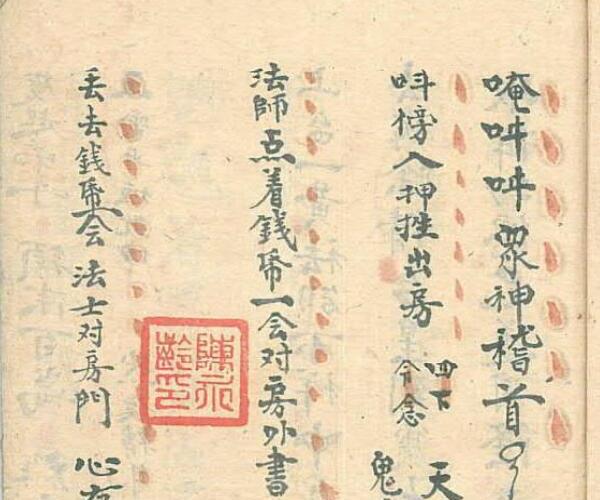 唵吽吽眾神稽首
吽傍入押挫出房 四下 令念
天
鬼
法師点着錢帋一会对房外書
丢去錢帋会法士对房門 心有
陳永齡印